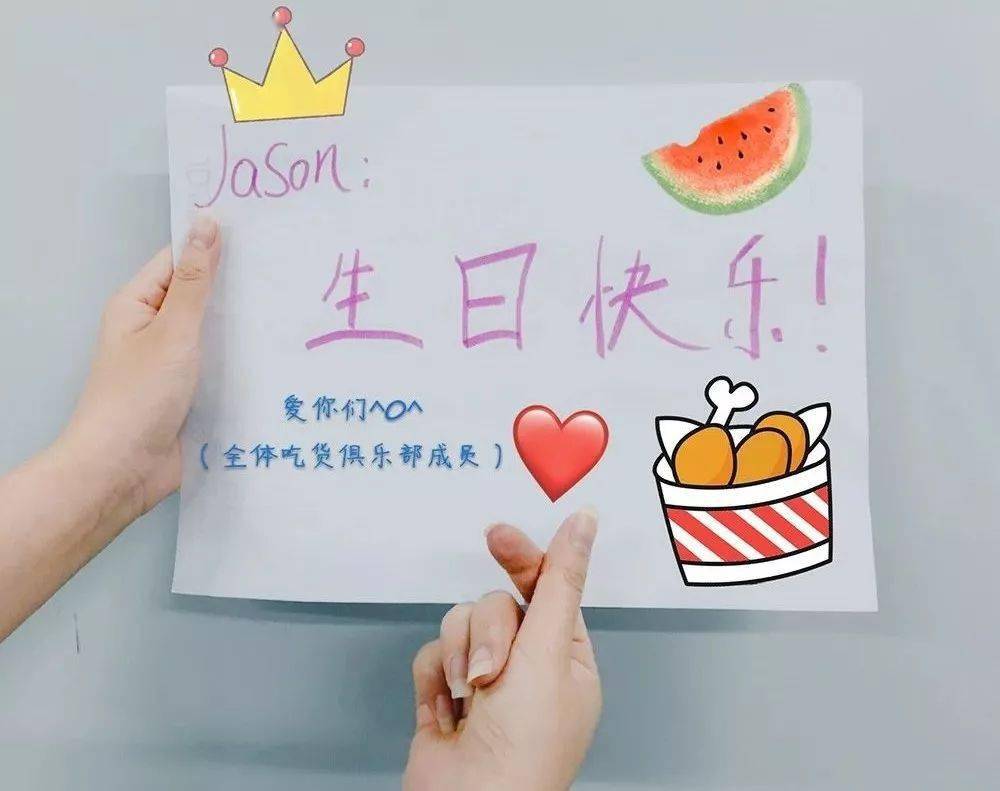 Jason:
生日快乐!
爱你们^O^
(全体吃货俱乐部成员)